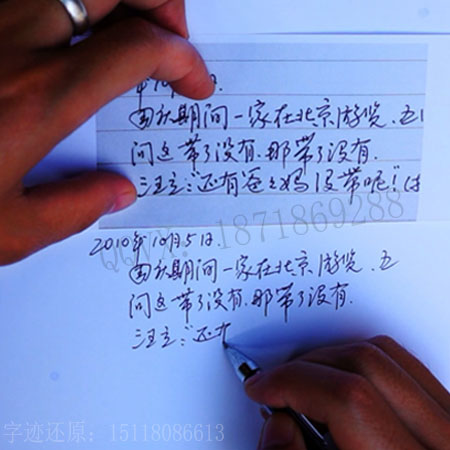 国庆期间一家在北京游览.五
问这带了没有.那带了没有.
汪立:“还有爸之妈没带呢!”
QQVX:18718869288
2010年10月5日.
国庆期间一家在北京游览.五
问这带了没有.那带了没有.
汪立:“还
字迹还原:15118086613